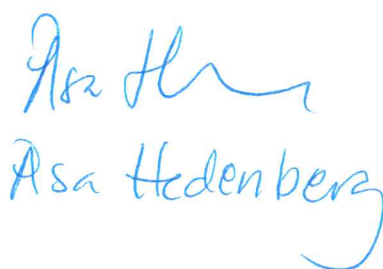 Åsa H
Åsa Hedenberg